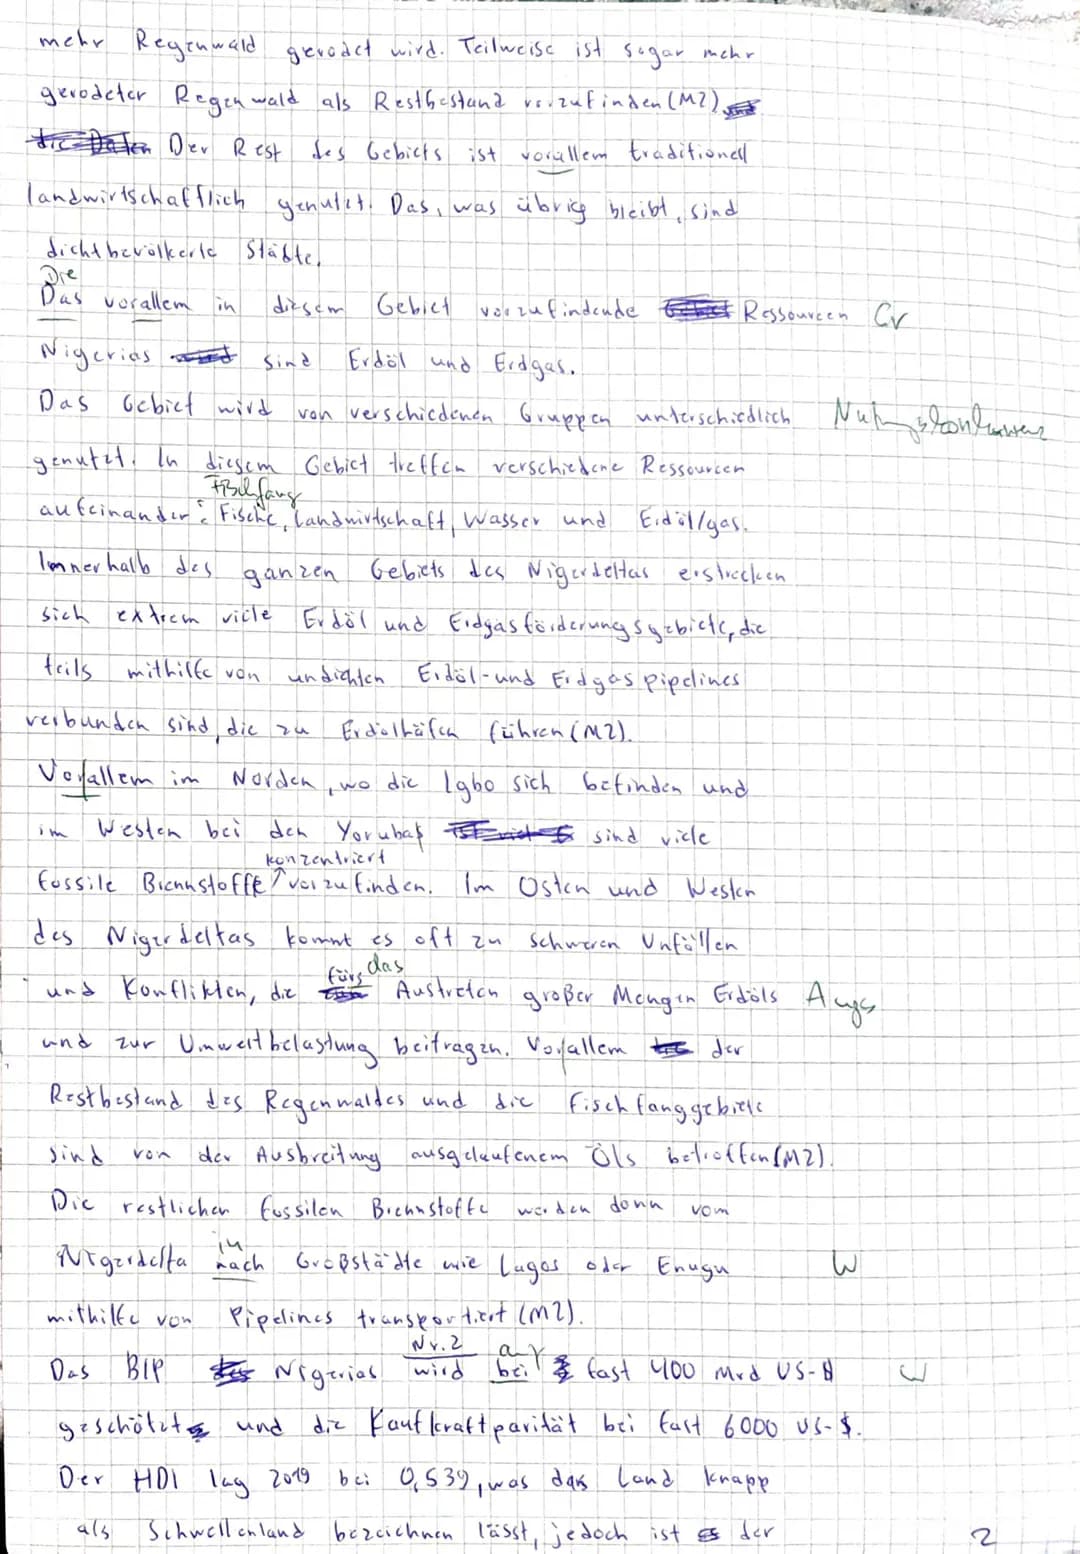 mehr Regenwald gerodet wird. Teilweise ist sogar mehr
gerodeter Regenwald als Restbestand vorzufinden (M2).
die Daten Der Rest des Gebiets ist vorallem traditionell
landwirtschafflich genutzt. Das, was übrig bleibt, sind
dichtbevölkerte Städte.
Die
Das vorallem in diesem Gebiet vorzufindende Ressourcen Gr
Nigerias sind Erdöl und Erdgas.
Das Gebiet wird von verschiedenen Gruppen unterschiedlich Nutzungskonkurrenz
genutzt. In diesem Gebiet treffen verschiedene Ressourcen
Fischfang
aufeinander: Fische, Landwirtschaft, Wasser und Erdöl/gas.
Innerhalb des ganzen Gebiets des Nigerdeltas erstrecken
sich extrem viele Erdöl und Erdgasförderungsgebiete, die
teils mithilfe von undichten Erdöl- und Erdgaspipelines
verbunden sind, die zu Erdölhäfen führen (M2).
Vorallem im Norden, wo die Igbo sich befinden und
im Westen bei den Yorubas sind viele
konzentriert
fossile Brennstoffe vorzufinden. Im Osten und Westen
des Nigerdeltas kommt es oft zu schweren Unfällen
fürs das
und Konflikten, die Austreten großer Mengen Erdöls Ausdr
und zur Umweltbelastung beitragen. Vorallem der
Restbestand des Regenwaldes und die Fischfanggebiete
sind von der Ausbreitung ausgelaufenem Öls betroffen (M2).
Die restlichen fossilen Brennstoffe werden dann vom
in
Nigerdelta nach Großstädte wie Lagos oder Enugu W
mithilfe von Pipelines transportiert (M2).
Nr. 2 auf
Das BIP Nigerias wird bei fast 400 Mrd US-$ W
geschätzt und die Kaufkraftparität bei fast 6000 US-$.
Der HDI lag 2019 bei 0,539, was das Land knapp
als Schwellenland bezeichnen lässt, jedoch ist der 2